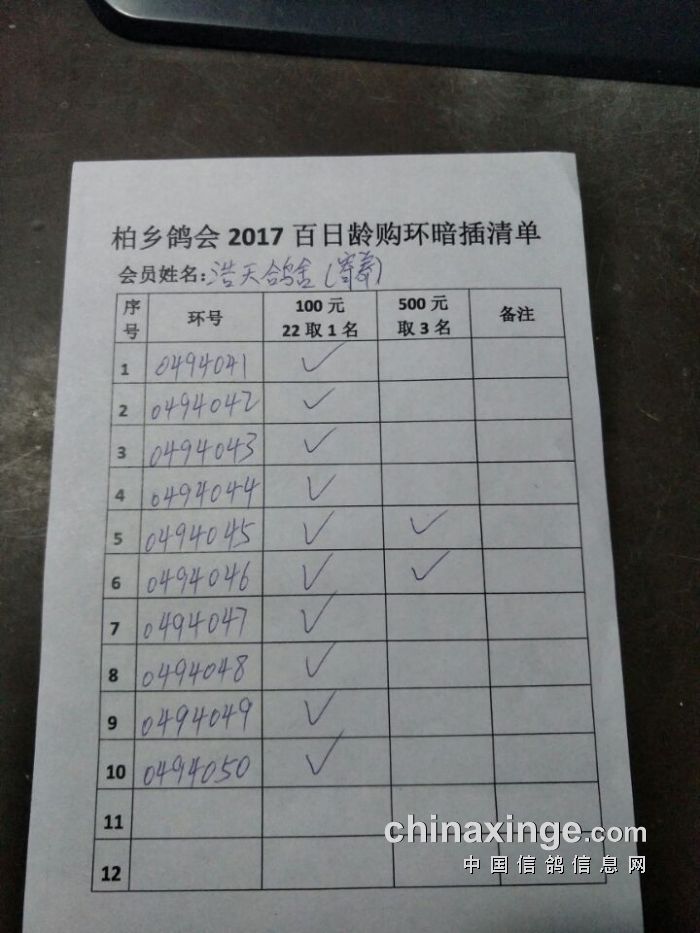 柏乡鸽会2017百日龄购环暗插清单
会员姓名:浩天鸽舍(
序号 环号 100元 22取1名 500元 取3名 备注
1 0494041 ✓
2 0494042 ✓
3 0494043 ✓
4 0494044 ✓
5 0494045 ✓ ✓
6 0494046 ✓ ✓
7 0494047 ✓
8 0494048 ✓
9 0494049 ✓
10 0494050 ✓
11
12
chinaxinge.com
中国信鸽信息网